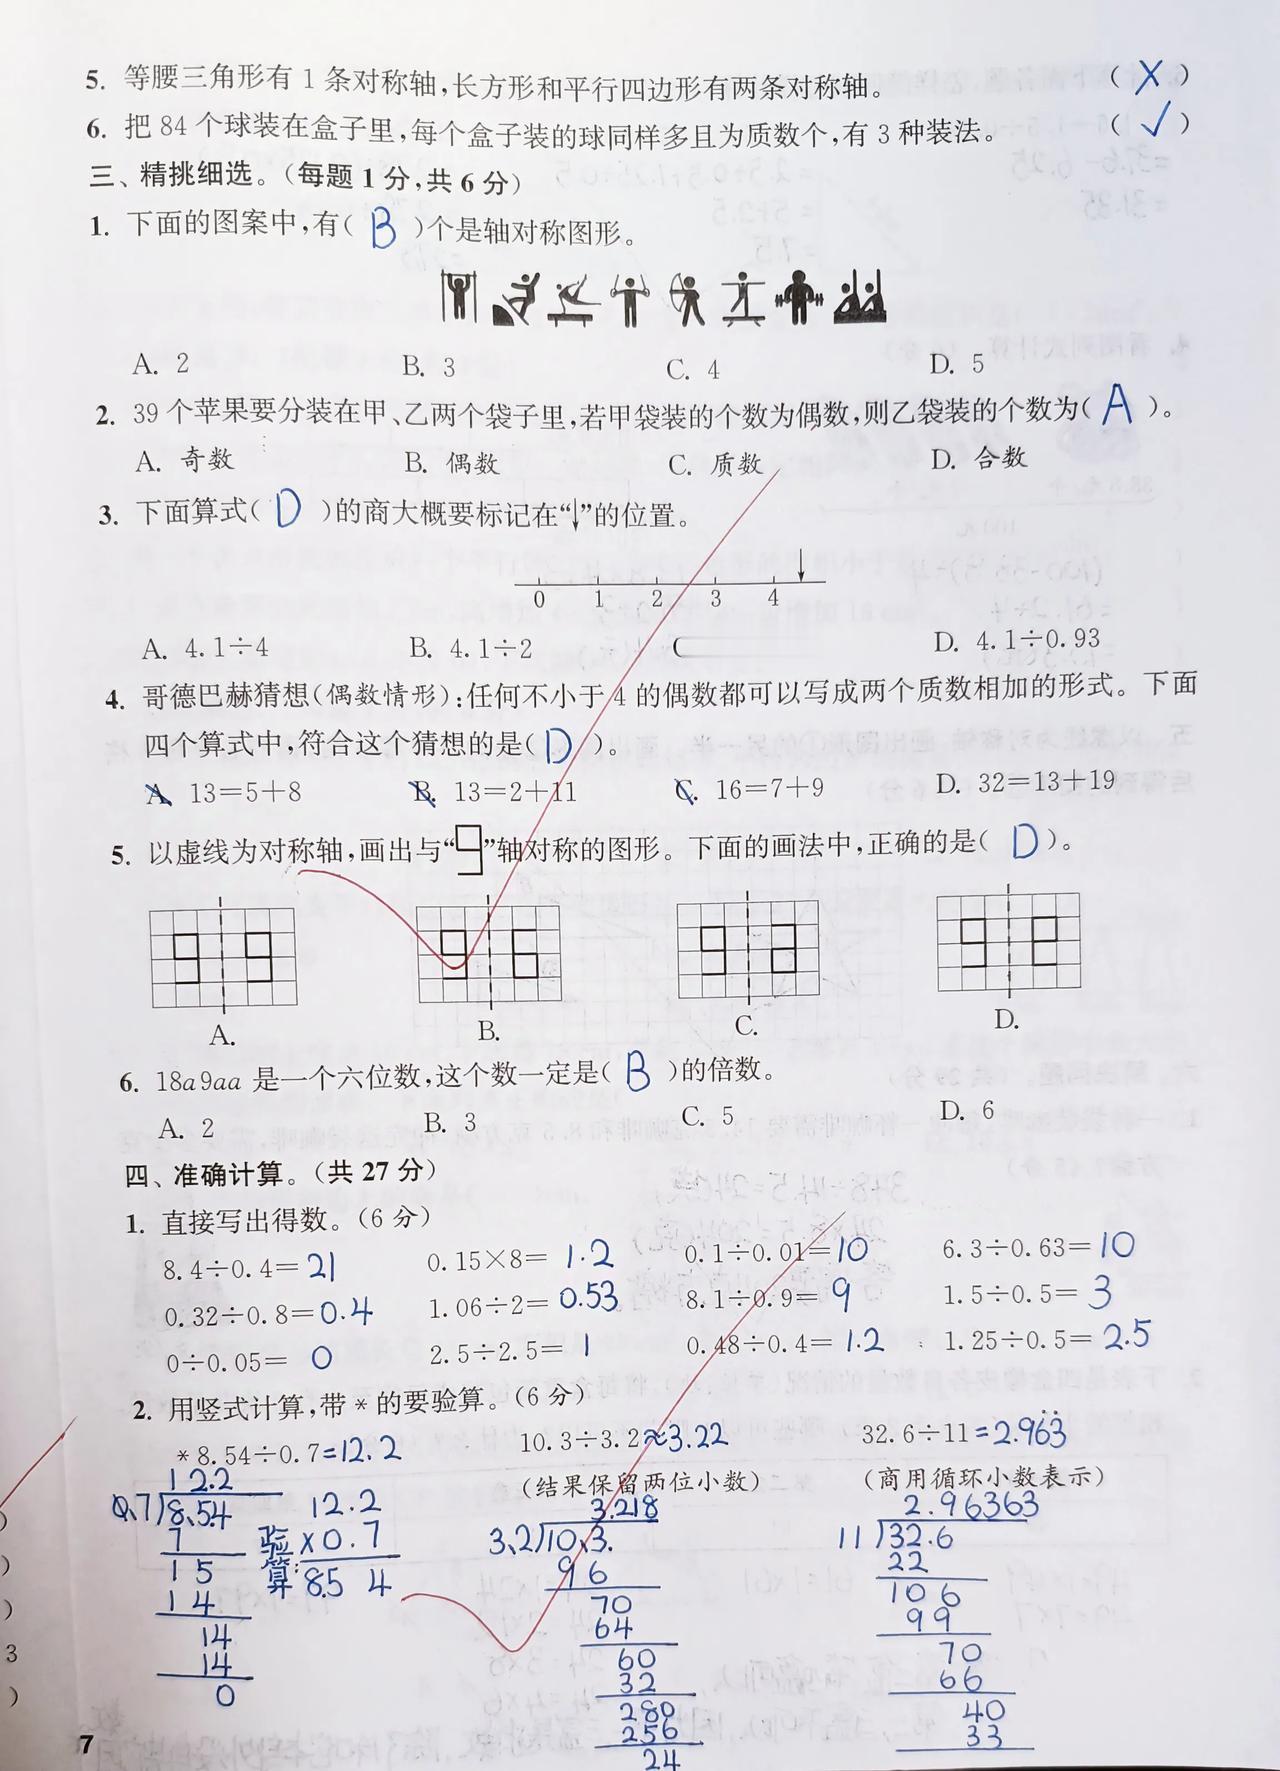 5. 等腰三角形有 1 条对称轴,长方形和平行四边形有两条对称轴。 ( X )
6. 把 84 个球装在盒子里,每个盒子装的球同样多且为质数个,有 3 种装法。( ✓ )
三、精挑细选。(每题 1 分,共 6 分)
1. 下面的图案中,有( B )个是轴对称图形。
A. 2 B. 3 C. 4 D. 5
2. 39 个苹果要分装在甲、乙两个袋子里,若甲袋装的个数为偶数,则乙袋装的个数为( A )。
A. 奇数 B. 偶数 C. 质数 D. 合数
3. 下面算式( D )的商大概要标记在“↓”的位置。
0 1 2 3 4
A. 4.1÷4 B. 4.1÷2 C D. 4.1÷0.93
4. 哥德巴赫猜想(偶数情形):任何不小于 4 的偶数都可以写成两个质数相加的形式。下面
四个算式中,符合这个猜想的是( D )。
A. 13=5+8 B. 13=2+11 C. 16=7+9 D. 32=13+19
5. 以虚线为对称轴,画出与“9”轴对称的图形。下面的画法中,正确的是( D )。
A. B. C. D.
6. 18a9aa 是一个六位数,这个数一定是( B )的倍数。
A. 2 B. 3 C. 5 D. 6
四、准确计算。(共 27 分)
1. 直接写出得数。(6 分)
8.4÷0.4=21 0.15×8=1.2 0.1÷0.01=10 6.3÷0.63=10
0.32÷0.8=0.4 1.06÷2=0.53 8.1÷0.9=9 1.5÷0.5=3
0÷0.05=0 2.5÷2.5=1 0.48÷0.4=1.2 1.25÷0.5=2.5
2. 用竖式计算,带 * 的要验算。(6 分)
*8.54÷0.7=12.2 10.3÷3.2≈3.22 32.6÷11=2.96̇3̇
(结果保留两位小数) (商用循环小数表示)
12.2 3.218 2.96363
0.7)8.54 12.2 3.2)10.3. 11)32.6
7 验 ×0.7 96 22
15 算: 8.5 4 70 106
14 64 99
14 60 70
14 32 66
0 280 40
256 33
24
3
7